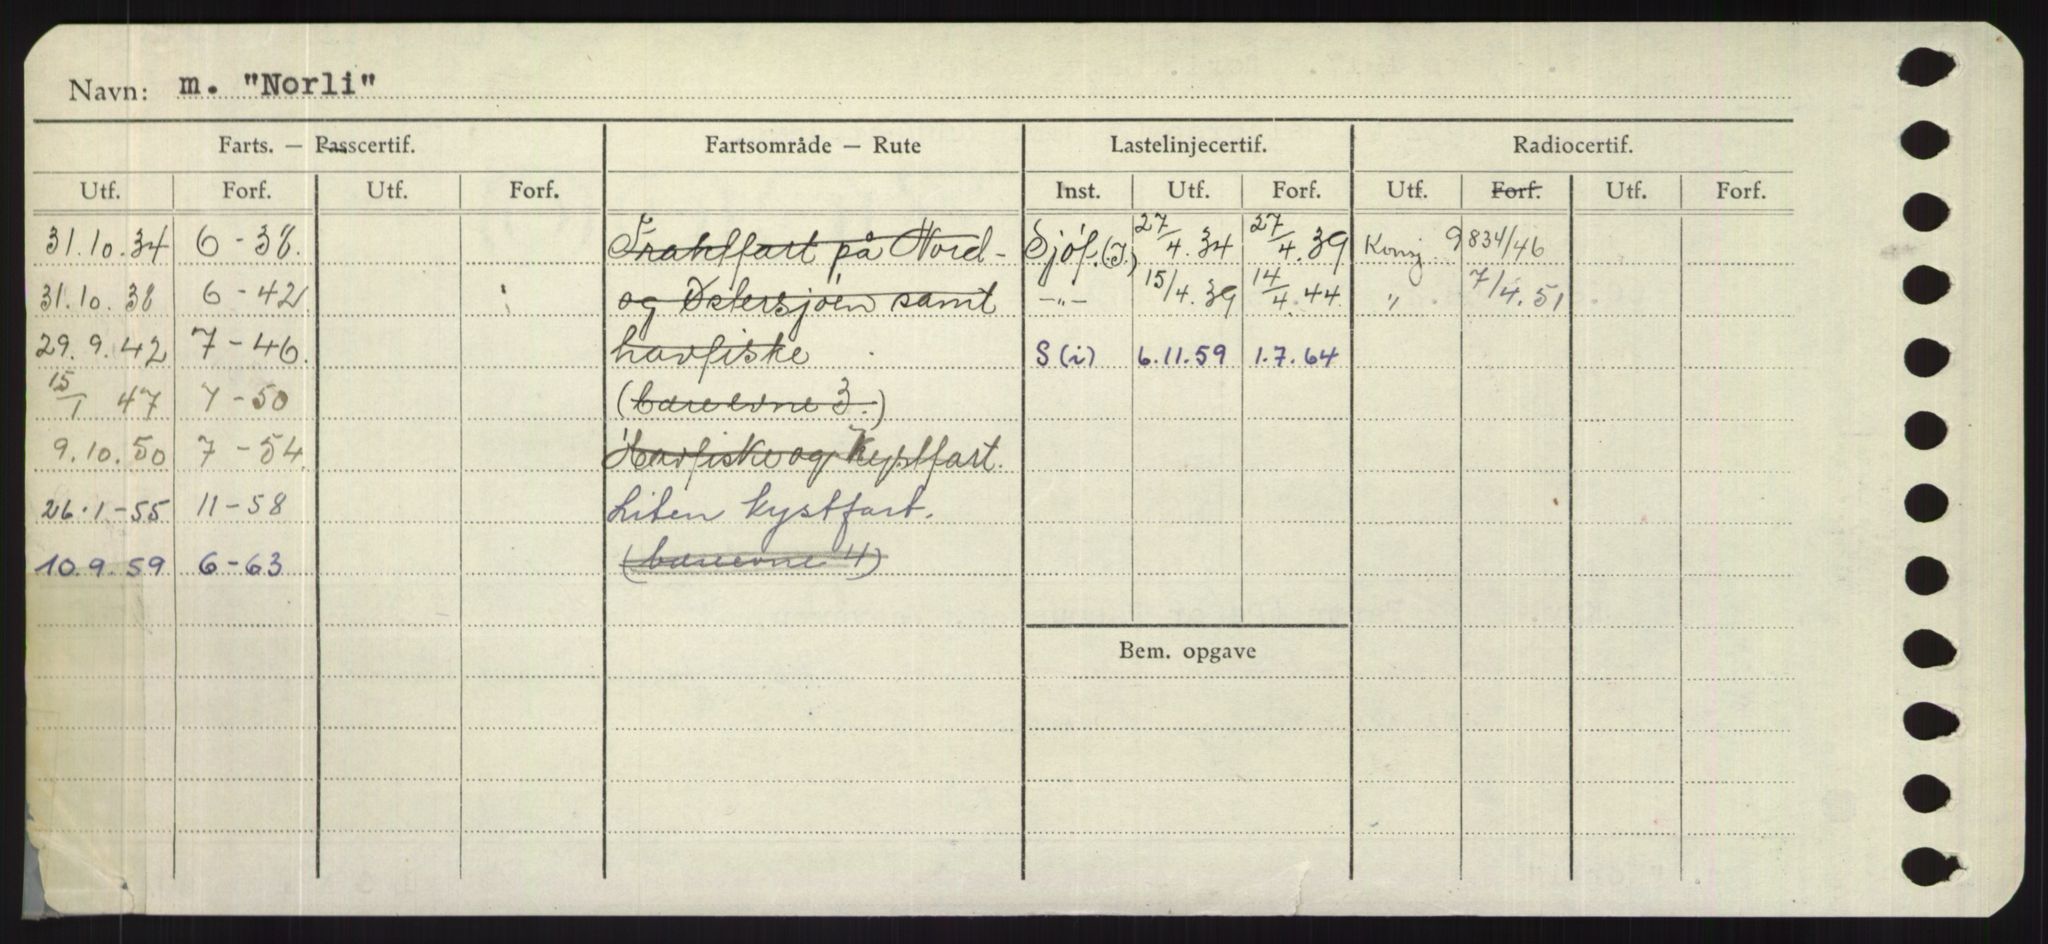 Navn: m. "Norli"
Farts. — Passcertif. Fartsområde — Rute Lastelinjecertif. Radiocertif.
Utf. Forf. Utf. Forf. Inst. Utf. Forf. Utf. Forf. Utf. Forf.
31.10.34 6-38. Fraktfart på Nord- Sjöf.(I.) 27/4.34 27/4.39 Konsj. 9834/46
31.10.38 6-42 og Östersjöen samt -"- 15/4.39 14/4.44 " 7/4.51
29.9.42 7-46. havfiske S(i) 6.11.59 1.7.64
15/1 47 7-50 (bæreevne 3.)
9.10.50 7-54 Havfiske og Kystfart.
26.1-55 11-58 Liten kystfart.
10.9.59 6-63 (bæreevne 4)
Bem. opgave